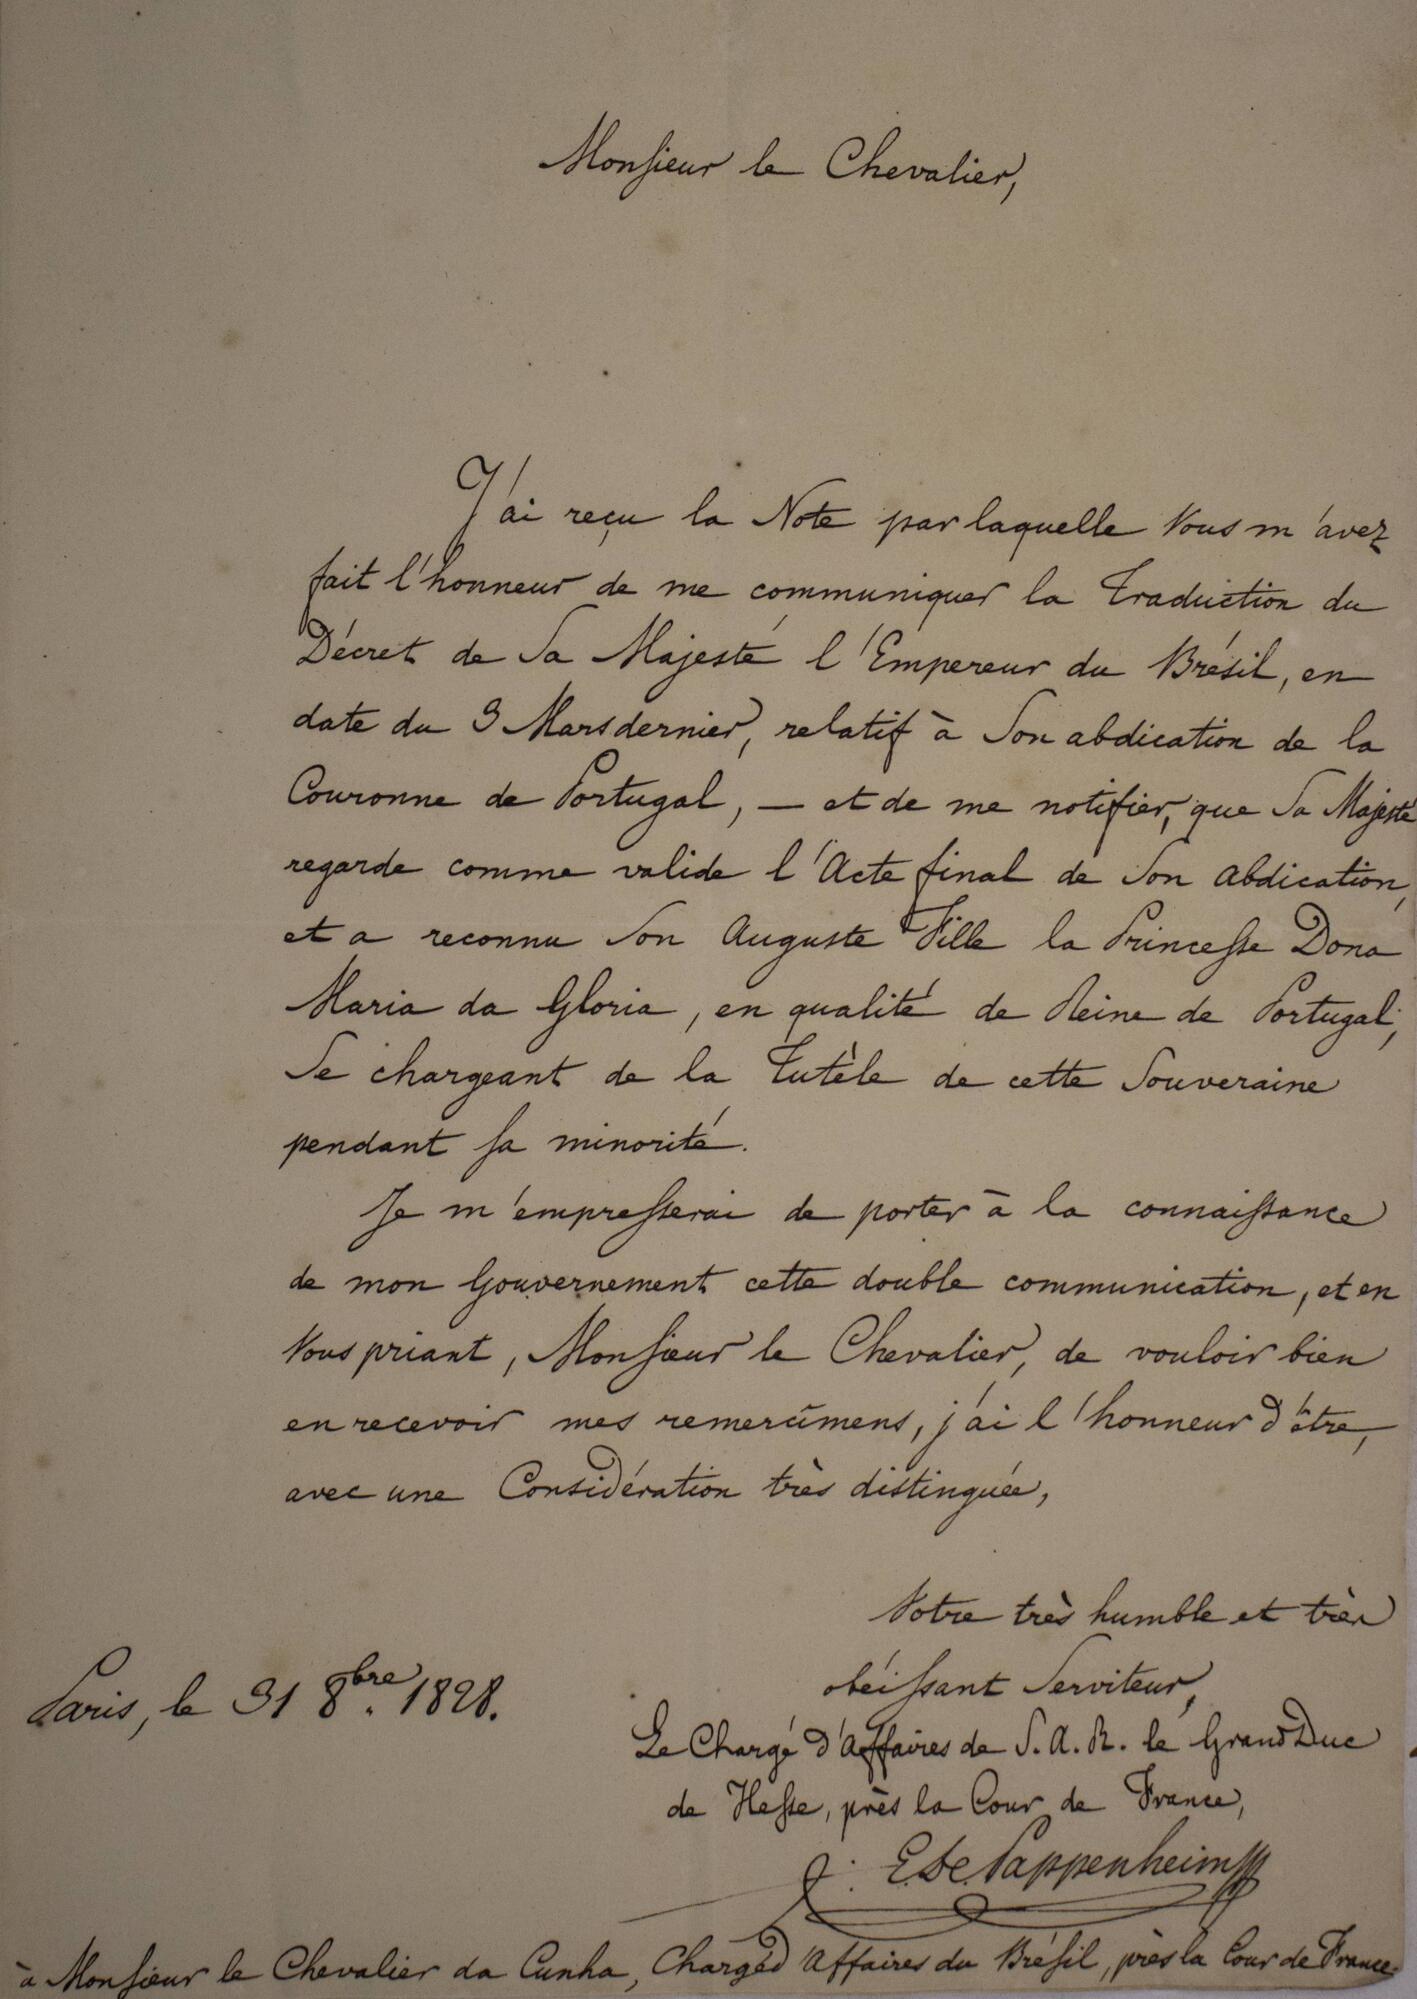 Monsieur le Chevalier,
J'ai reçu la Note par laquelle Vous m'avez
fait l'honneur de me communiquer la Traduction du
Décret de Sa Majesté l'Empereur du Brésil, en
date du 3 Mars dernier, relatif à Son abdication de la
Couronne de Portugal, — et de me notifier, que Sa Majesté
regarde comme valide l'Acte final de Son Abdication,
et a reconnu Son Auguste Fille la Princesse Dona
Maria da Gloria, en qualité de Reine de Portugal,
Se chargeant de la Tutèle de cette Souveraine
pendant sa minorité.
Je m'empresserai de porter à la connaissance
de mon Gouvernement cette double communication, et en
Vous priant, Monsieur le Chevalier, de vouloir bien
en recevoir mes remercîmens, j'ai l'honneur d'être,
avec une Considération très distinguée,
Votre très humble et très
obéissant Serviteur,
Paris, le 31 8bre. 1828.
Le Chargé d'Affaires de S. A. R. le Grand Duc
de Hesse, près la Cour de France,
E. de Pappenheim
à Monsieur le Chevalier da Cunha, Chargé d'Affaires du Brésil, près la Cour de France.